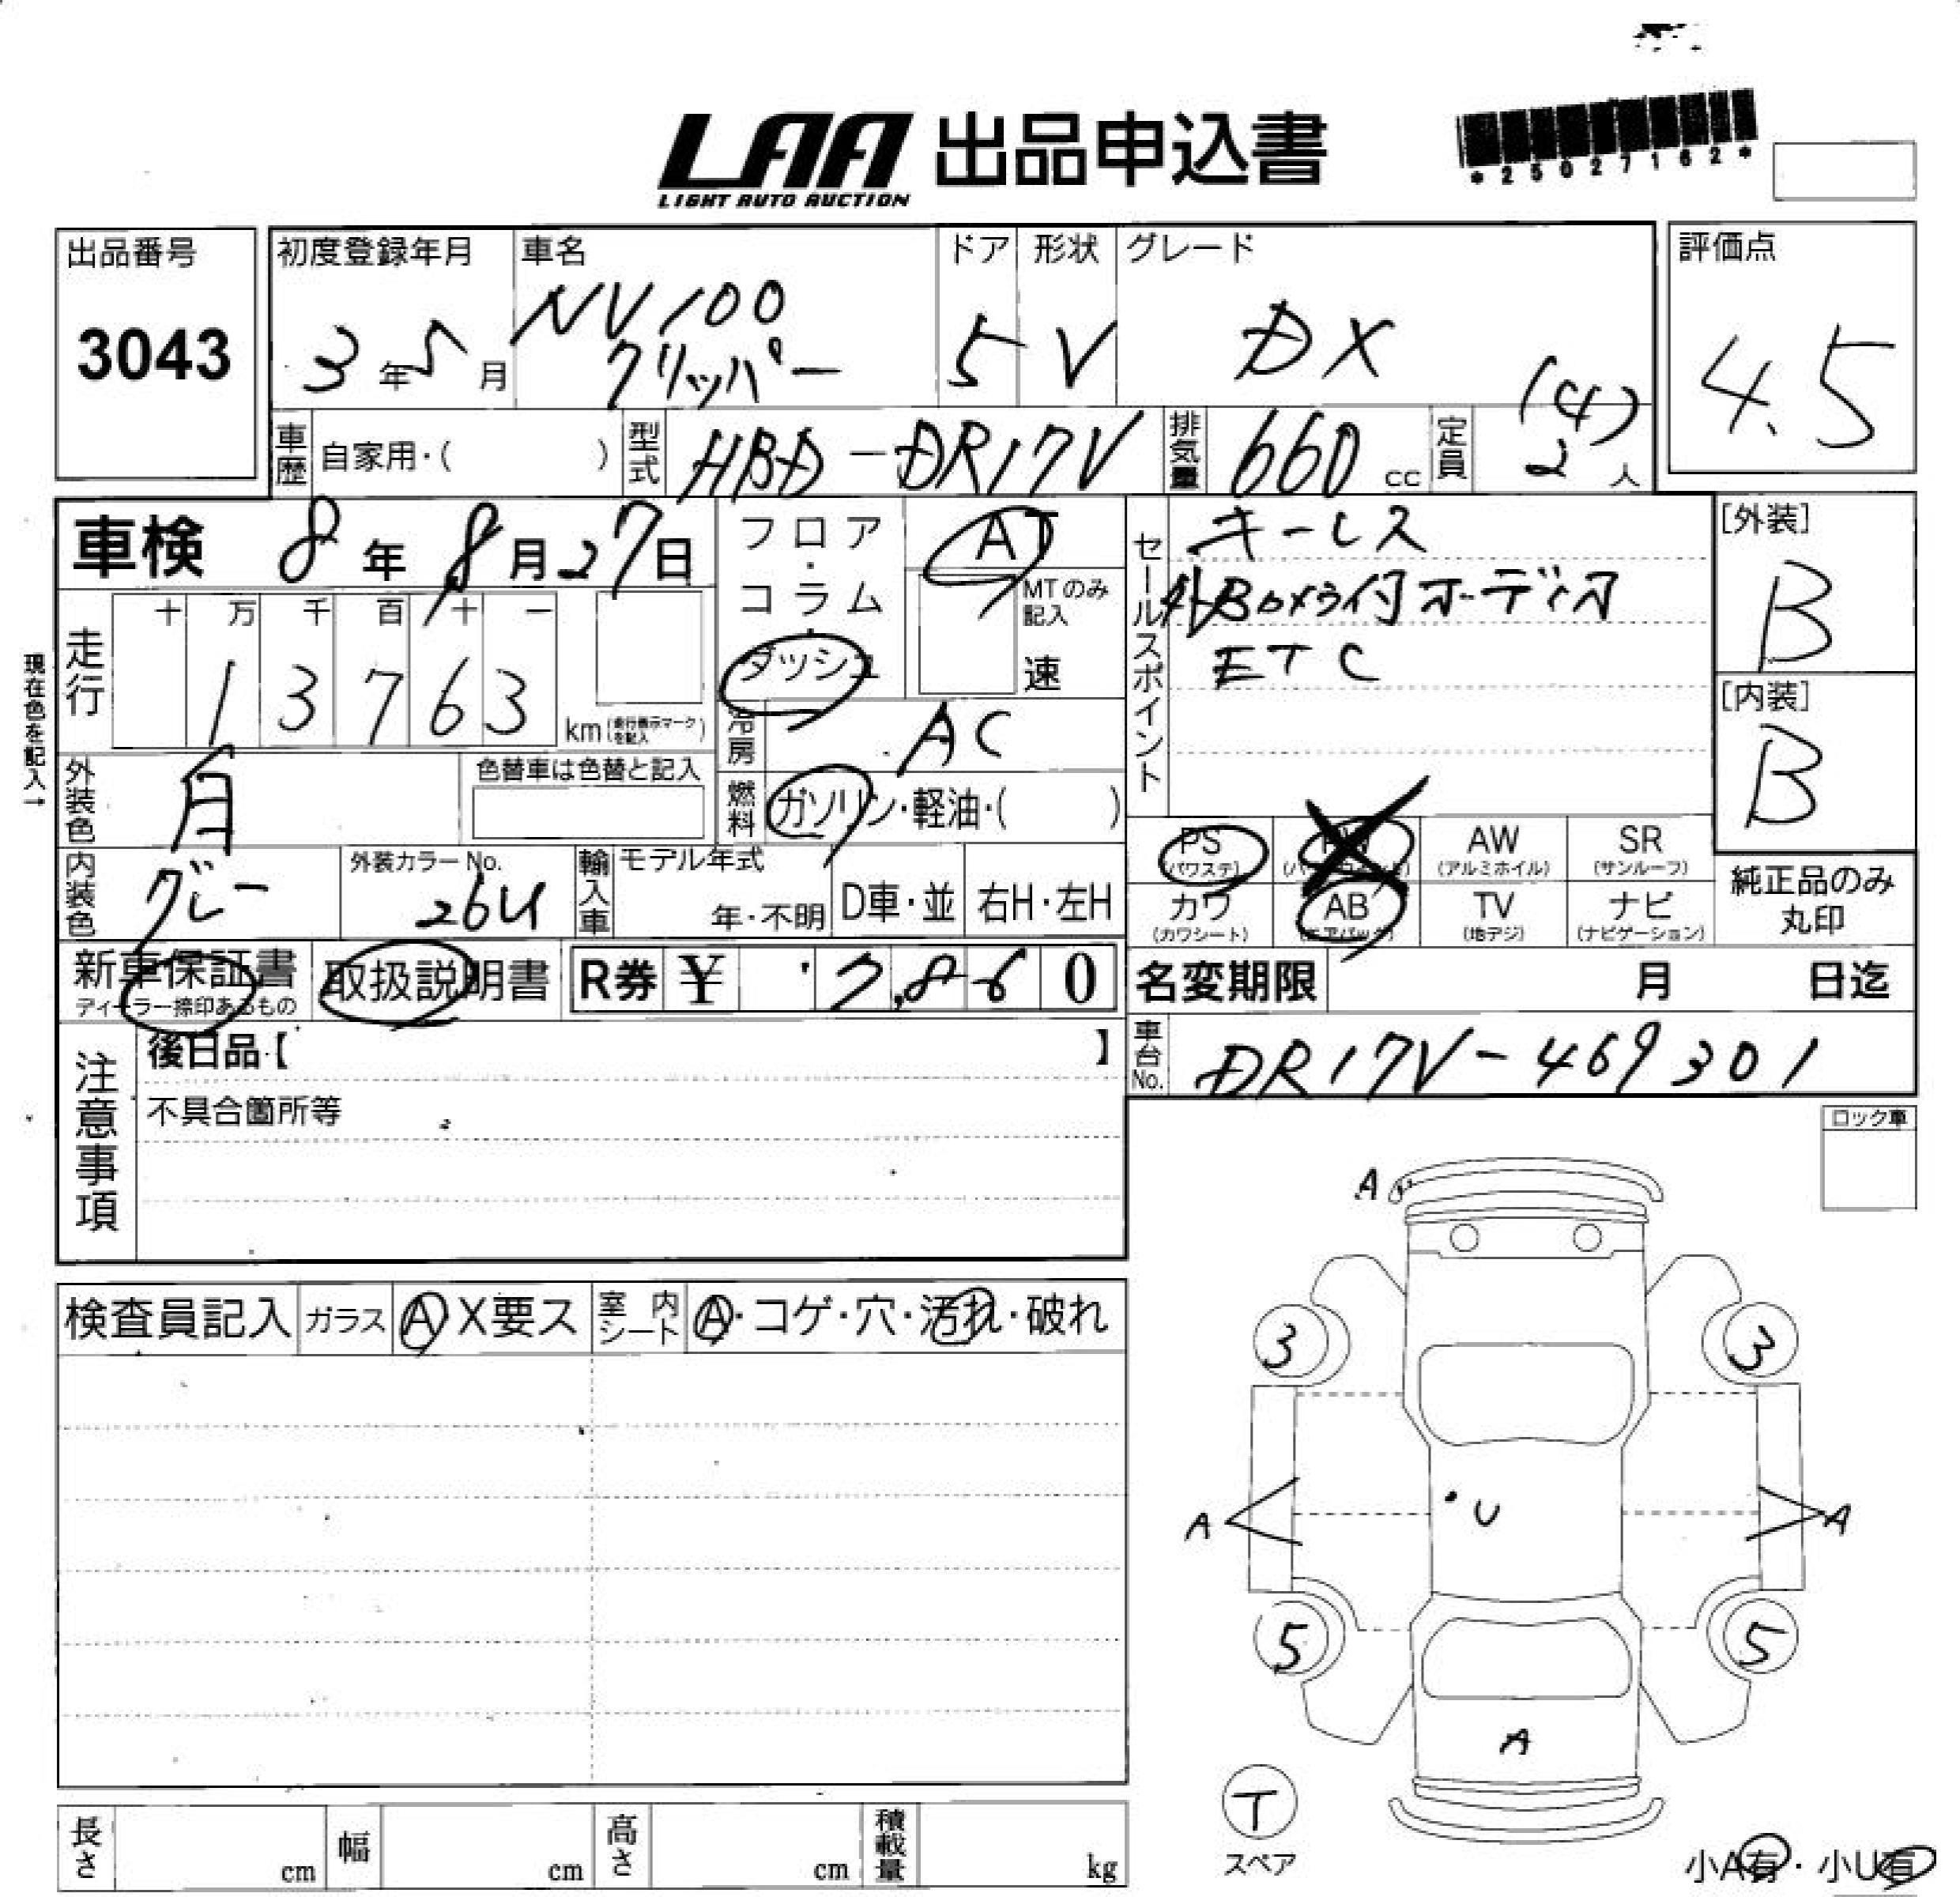 LAA 出品申込書
LIGHT AUTO AUCTION
*25027162*
出品番号
3043
初度登録年月
3年5月
車名
NV100
クリッパー
ドア
5
形状
V
グレード
DX
評価点
4.5
車歴
自家用・( )
型式
HBD-DR17V
排気量
660 cc
定員
(4)
2 人
車検 8年 8月27日
フロア・コラム・ダッシュ
AT
MTのみ記入
速
セールスポイント
キーレス
外Bカメラ付オーディオ
ETC
[外装]
B
[内装]
B
現在色を記入→
走行
十 万 千 百 十 一
1 3 7 6 3
km(走行表示マークを記入)
冷房
AC
外装色
白
色替車は色替と記入
燃料
ガソリン・軽油・( )
内装色
グレー
外装カラーNo.
26U
輸入車
モデル年式
年・不明
D車・並
右H・左H
PS
(パワステ)
PW
AW
(アルミホイル)
SR
(サンルーフ)
カワ
(カワシート)
AB
(エアバック)
TV
(地デジ)
ナビ
(ナビゲーション)
純正品のみ
丸印
新車保証書
ディーラー捺印あるもの
取扱説明書
R券 ¥ 7,860
名変期限 月 日迄
注意事項
後日品【 】
不具合箇所等
車台No.
DR17V-469301
ロック車
検査員記入
ガラス
A X要ス
室内シート
A・コゲ・穴・汚れ・破れ
A
3
3
A
U
A
5
5
A
T
スペア
小A有・小U有
長さ cm
幅 cm
高さ cm
積載量 kg